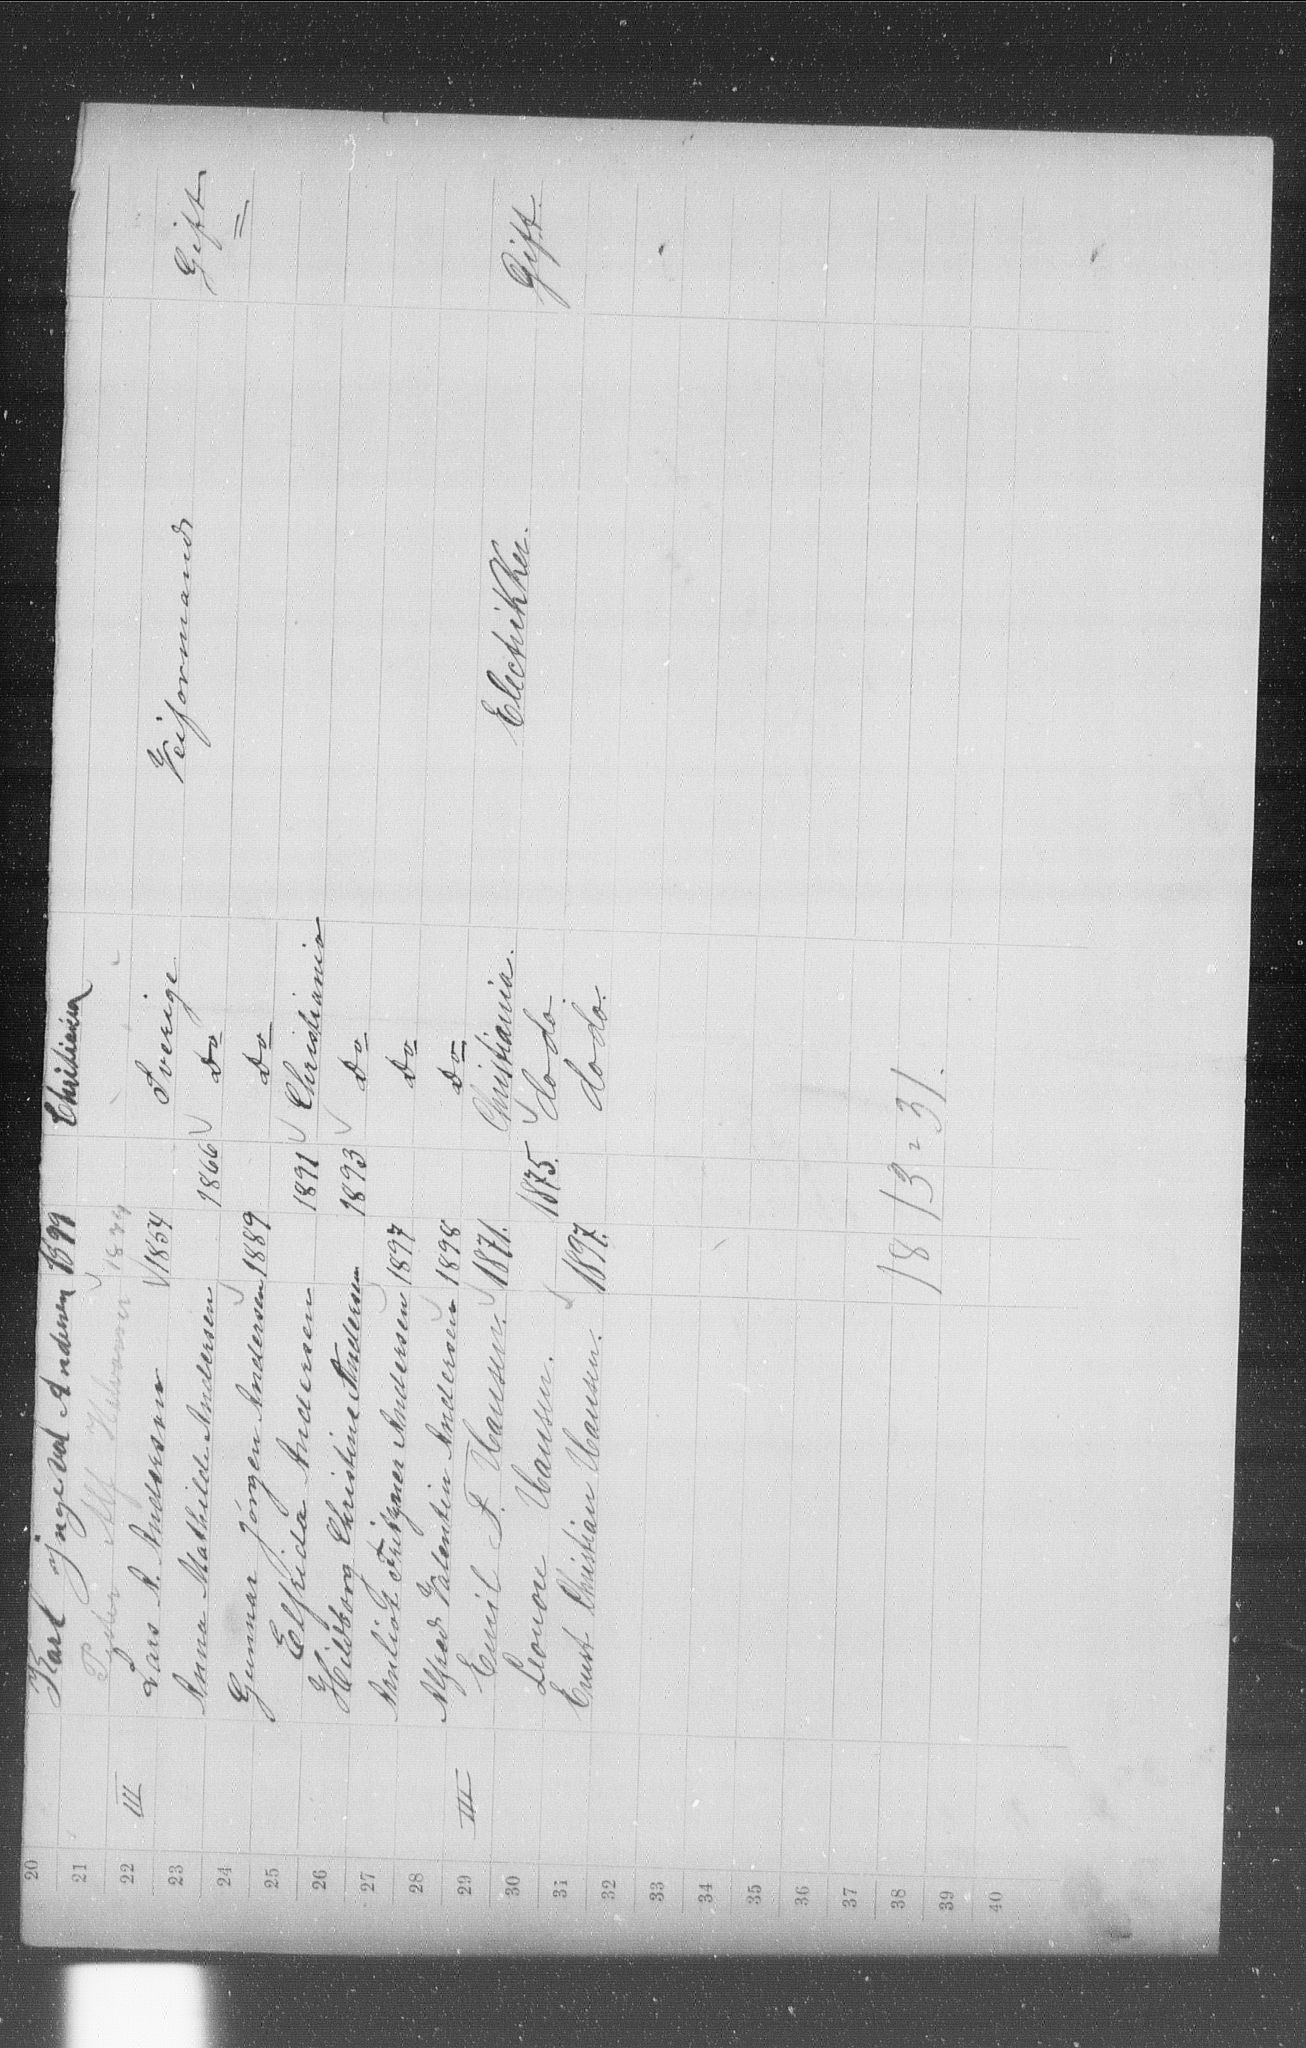 20 Karl Ingevald Andersen 1899 Christiania
21 Peder Alf Halvorsen 1899
22 III Lars A. Anderson 1854 Sverige Veiformand Gift
23 Anna Mathilde Andersen 1866 Do =
24 Gunnar Jörgen Andersen 1889 Do
25 Elfrida Andersen 1891 Christiania
26 Hildborg Christine Andersen 1893 Do
27 Fritzner Andersen 1897 Do
28 Alfred Valentin Andersen 1898 Do
29 III Emil F. Hansen. 1871. Christiania. Electrikker. Gift.
30 Leonore Hansen. 1875. do do.
31 Ernst Christian Hansen. 1897. do do.
32
33
34
35
36
37
38 18 13 = 31.
39
40